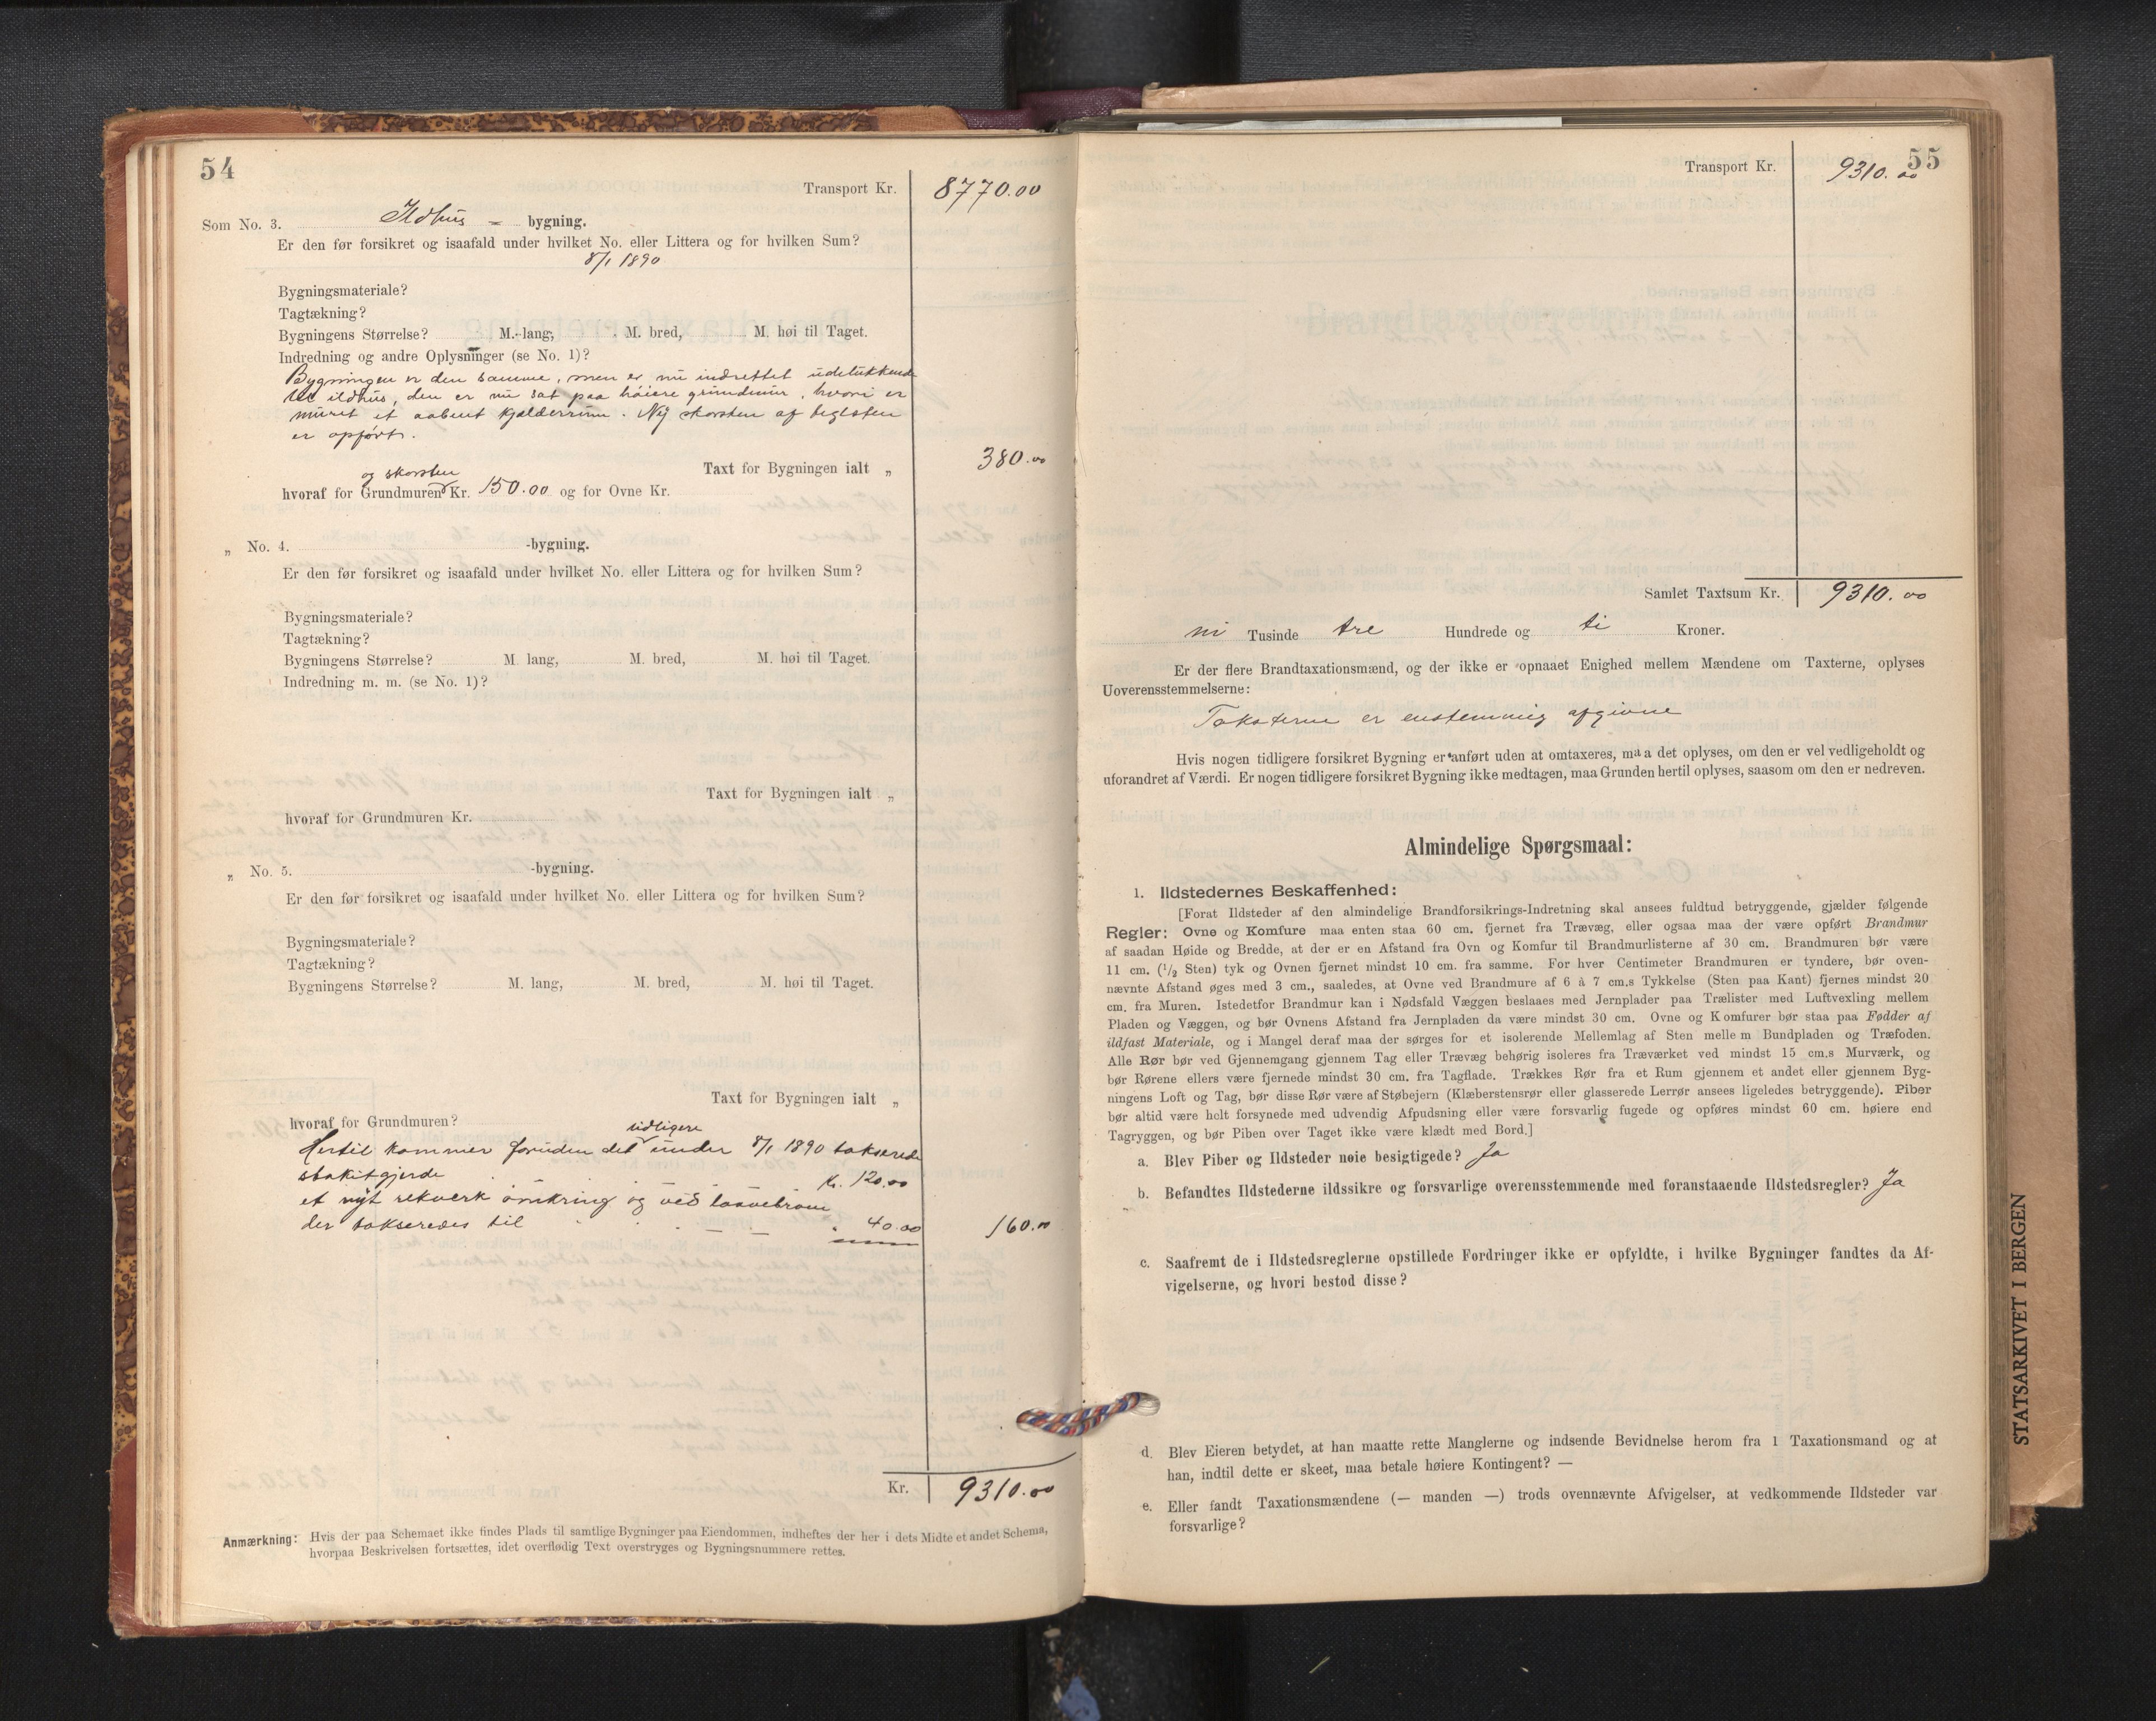 54
Transport Kr. 8770.00
Som No. 3. Ildhus - bygning.
Er den før forsikret og isaafald under hvilket No. eller Littera og for hvilken Sum?
8/1 1890
Bygningsmateriale?
Tagtækning?
Bygningens Størrelse? M. lang, M. bred, M. høi til Taget.
Indredning og andre Oplysninger (se No. 1)?
Bygningen er den samme, men er nu indrettet udelukkende
til ildhus, den er nu sat paa høiere grundmur, hvori er
muret et aabent kjælderrum. Ny skorsten af teglsten
er opført.
Taxt for Bygningen ialt „ 380.00
og skorsten
hvoraf for Grundmuren Kr. 150.00 og for Ovne Kr.
„ No. 4. -bygning.
Er den før forsikret og isaafald under hvilket No. eller Littera og for hvilken Sum?
Bygningsmateriale?
Tagtækning?
Bygningens Størrelse? M. lang, M. bred, M. høi til Taget.
Indredning m. m. (se No. 1)?
Taxt for Bygningen ialt „
hvoraf for Grundmuren Kr.
„ No. 5. -bygning.
Er den før forsikret og isaafald under hvilket No. eller Littera og for hvilken Sum?
Bygningsmateriale?
Tagtækning?
Bygningens Størrelse? M. lang, M. bred, M. høi til Taget.
Taxt for Bygningen ialt „
hvoraf for Grundmuren?
tidligere
Hertil kommer foruden det under 8/1 1890 takserede
stakitgjerde Kr. 120.00
et nyt rekverk omkring og ved
der takseredes til 40.00 160.00
Kr. 9310.00
Anmærkning: Hvis der paa Schemaet ikke findes Plads til samtlige Bygninger paa Eiendommen, indheftes der her i dets Midte et andet Schema,
hvorpaa Beskrivelsen fortsættes, idet overflødig Text overstryges og Bygningsnummere rettes.
55
Transport Kr. 9310.00
Samlet Taxtsum Kr. 9310.00
ni Tusinde tre Hundrede og ti Kroner.
Er der flere Brandtaxationsmænd, og der ikke er opnaaet Enighed mellem Mændene om Taxterne, oplyses
Uoverensstemmelserne:
Taksterne er enstemmig afgivne
Hvis nogen tidligere forsikret Bygning er anført uden at omtaxeres, maa det oplyses, om den er vel vedligeholdt og
uforandret af Værdi. Er nogen tidligere forsikret Bygning ikke medtagen, maa Grunden hertil oplyses, saasom om den er nedreven.
Almindelige Spørgsmaal:
1. Ildstedernes Beskaffenhed:
[Forat Ildsteder af den almindelige Brandforsikrings-Indretning skal ansees fuldtud betryggende, gjælder følgende
Regler: Ovne og Komfure maa enten staa 60 cm. fjernet fra Trævæg, eller ogsaa maa der være opført Brandmur
af saadan Høide og Bredde, at der er en Afstand fra Ovn og Komfur til Brandmurlisterne af 30 cm. Brandmuren bør være
11 cm. (1/2 Sten) tyk og Ovnen fjernet mindst 10 cm. fra samme. For hver Centimeter Brandmuren er tyndere, bør oven-
nævnte Afstand øges med 3 cm., saaledes, at Ovne ved Brandmure af 6 à 7 cm.s Tykkelse (Sten paa Kant) fjernes mindst 20
cm. fra Muren. Istedetfor Brandmur kan i Nødsfald Væggen beslaaes med Jernplader paa Trælister med Luftvexling mellem
Pladen og Væggen, og bør Ovnens Afstand fra Jernpladen da være mindst 30 cm. Ovne og Komfurer bør staa paa Fødder af
ildfast Materiale, og i Mangel deraf maa der sørges for et isolerende Mellemlag af Sten mellem Bundpladen og Træfoden.
Alle Rør bør ved Gjennemgang gjennem Tag eller Trævæg behørig isoleres fra Træværket ved mindst 15 cm.s Murværk, og
bør Rørene ellers være fjernede mindst 30 cm. fra Tagflade. Trækkes Rør fra et Rum gjennem et andet eller gjennem Byg-
ningens Loft og Tag, bør disse Rør være af Støbejern (Klæberstensrør eller glasserede Lerrør ansees ligeledes betryggende). Piber
bør altid være helt forsynede med udvendig Afpudsning eller være forsvarlig fugede og opføres mindst 60 cm. høiere end
Tagryggen, og bør Piben over Taget ikke være klædt med Bord.]
a. Blev Piber og Ildsteder nøie besigtigede? Ja
b. Befandtes Ildstederne ildssikre og forsvarlige overensstemmende med foranstaaende Ildstedsregler? Ja
c. Saafremt de i Ildstedsreglerne opstillede Fordringer ikke er opfyldte, i hvilke Bygninger fandtes da Af-
vigelserne, og hvori bestod disse?
d. Blev Eieren betydet, at han maatte rette Manglerne og indsende Bevidnelse herom fra 1 Taxationsmand og at
han, indtil dette er skeet, maa betale høiere Kontingent? —
e. Eller fandt Taxationsmændene (— manden —) trods ovennævnte Afvigelser, at vedkommende Ildsteder var
forsvarlige?
STATSARKIVET I BERGEN